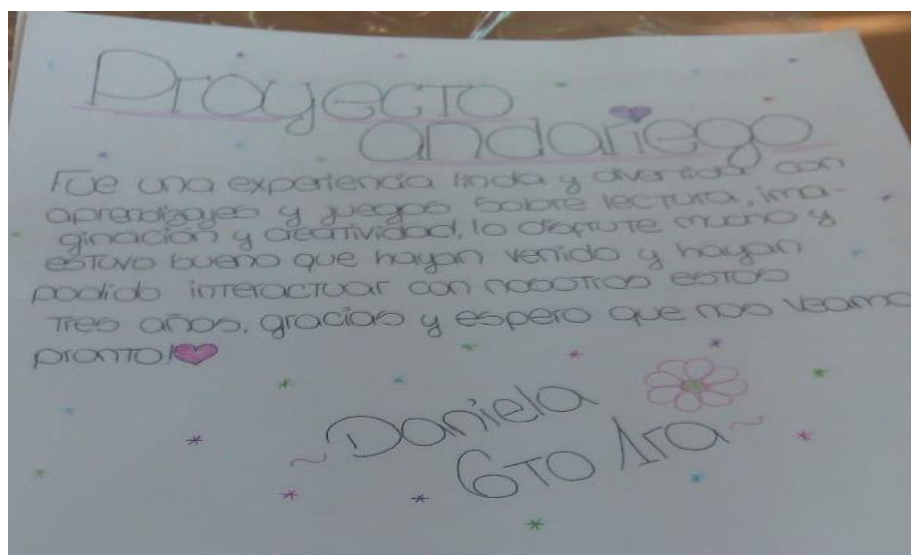 Proyecto
andariego
Fue una experiencia linda y divertida con
aprendizajes y juegos sobre lectura, ima-
ginación y creatividad, lo disfrute mucho y
estuvo bueno que hayan venido y hayan
podido interactuar con nosotros estos
tres años, gracias y espero que nos veamo
pronto!
~Daniela
6to 1ra~